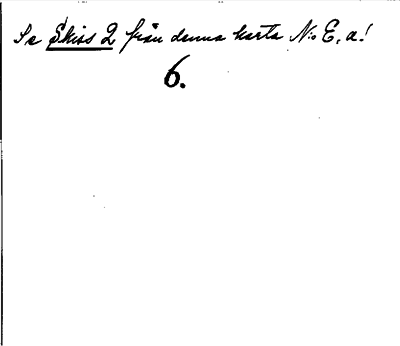 Se Skiss 2 från denna karta N:o E. a!
6.